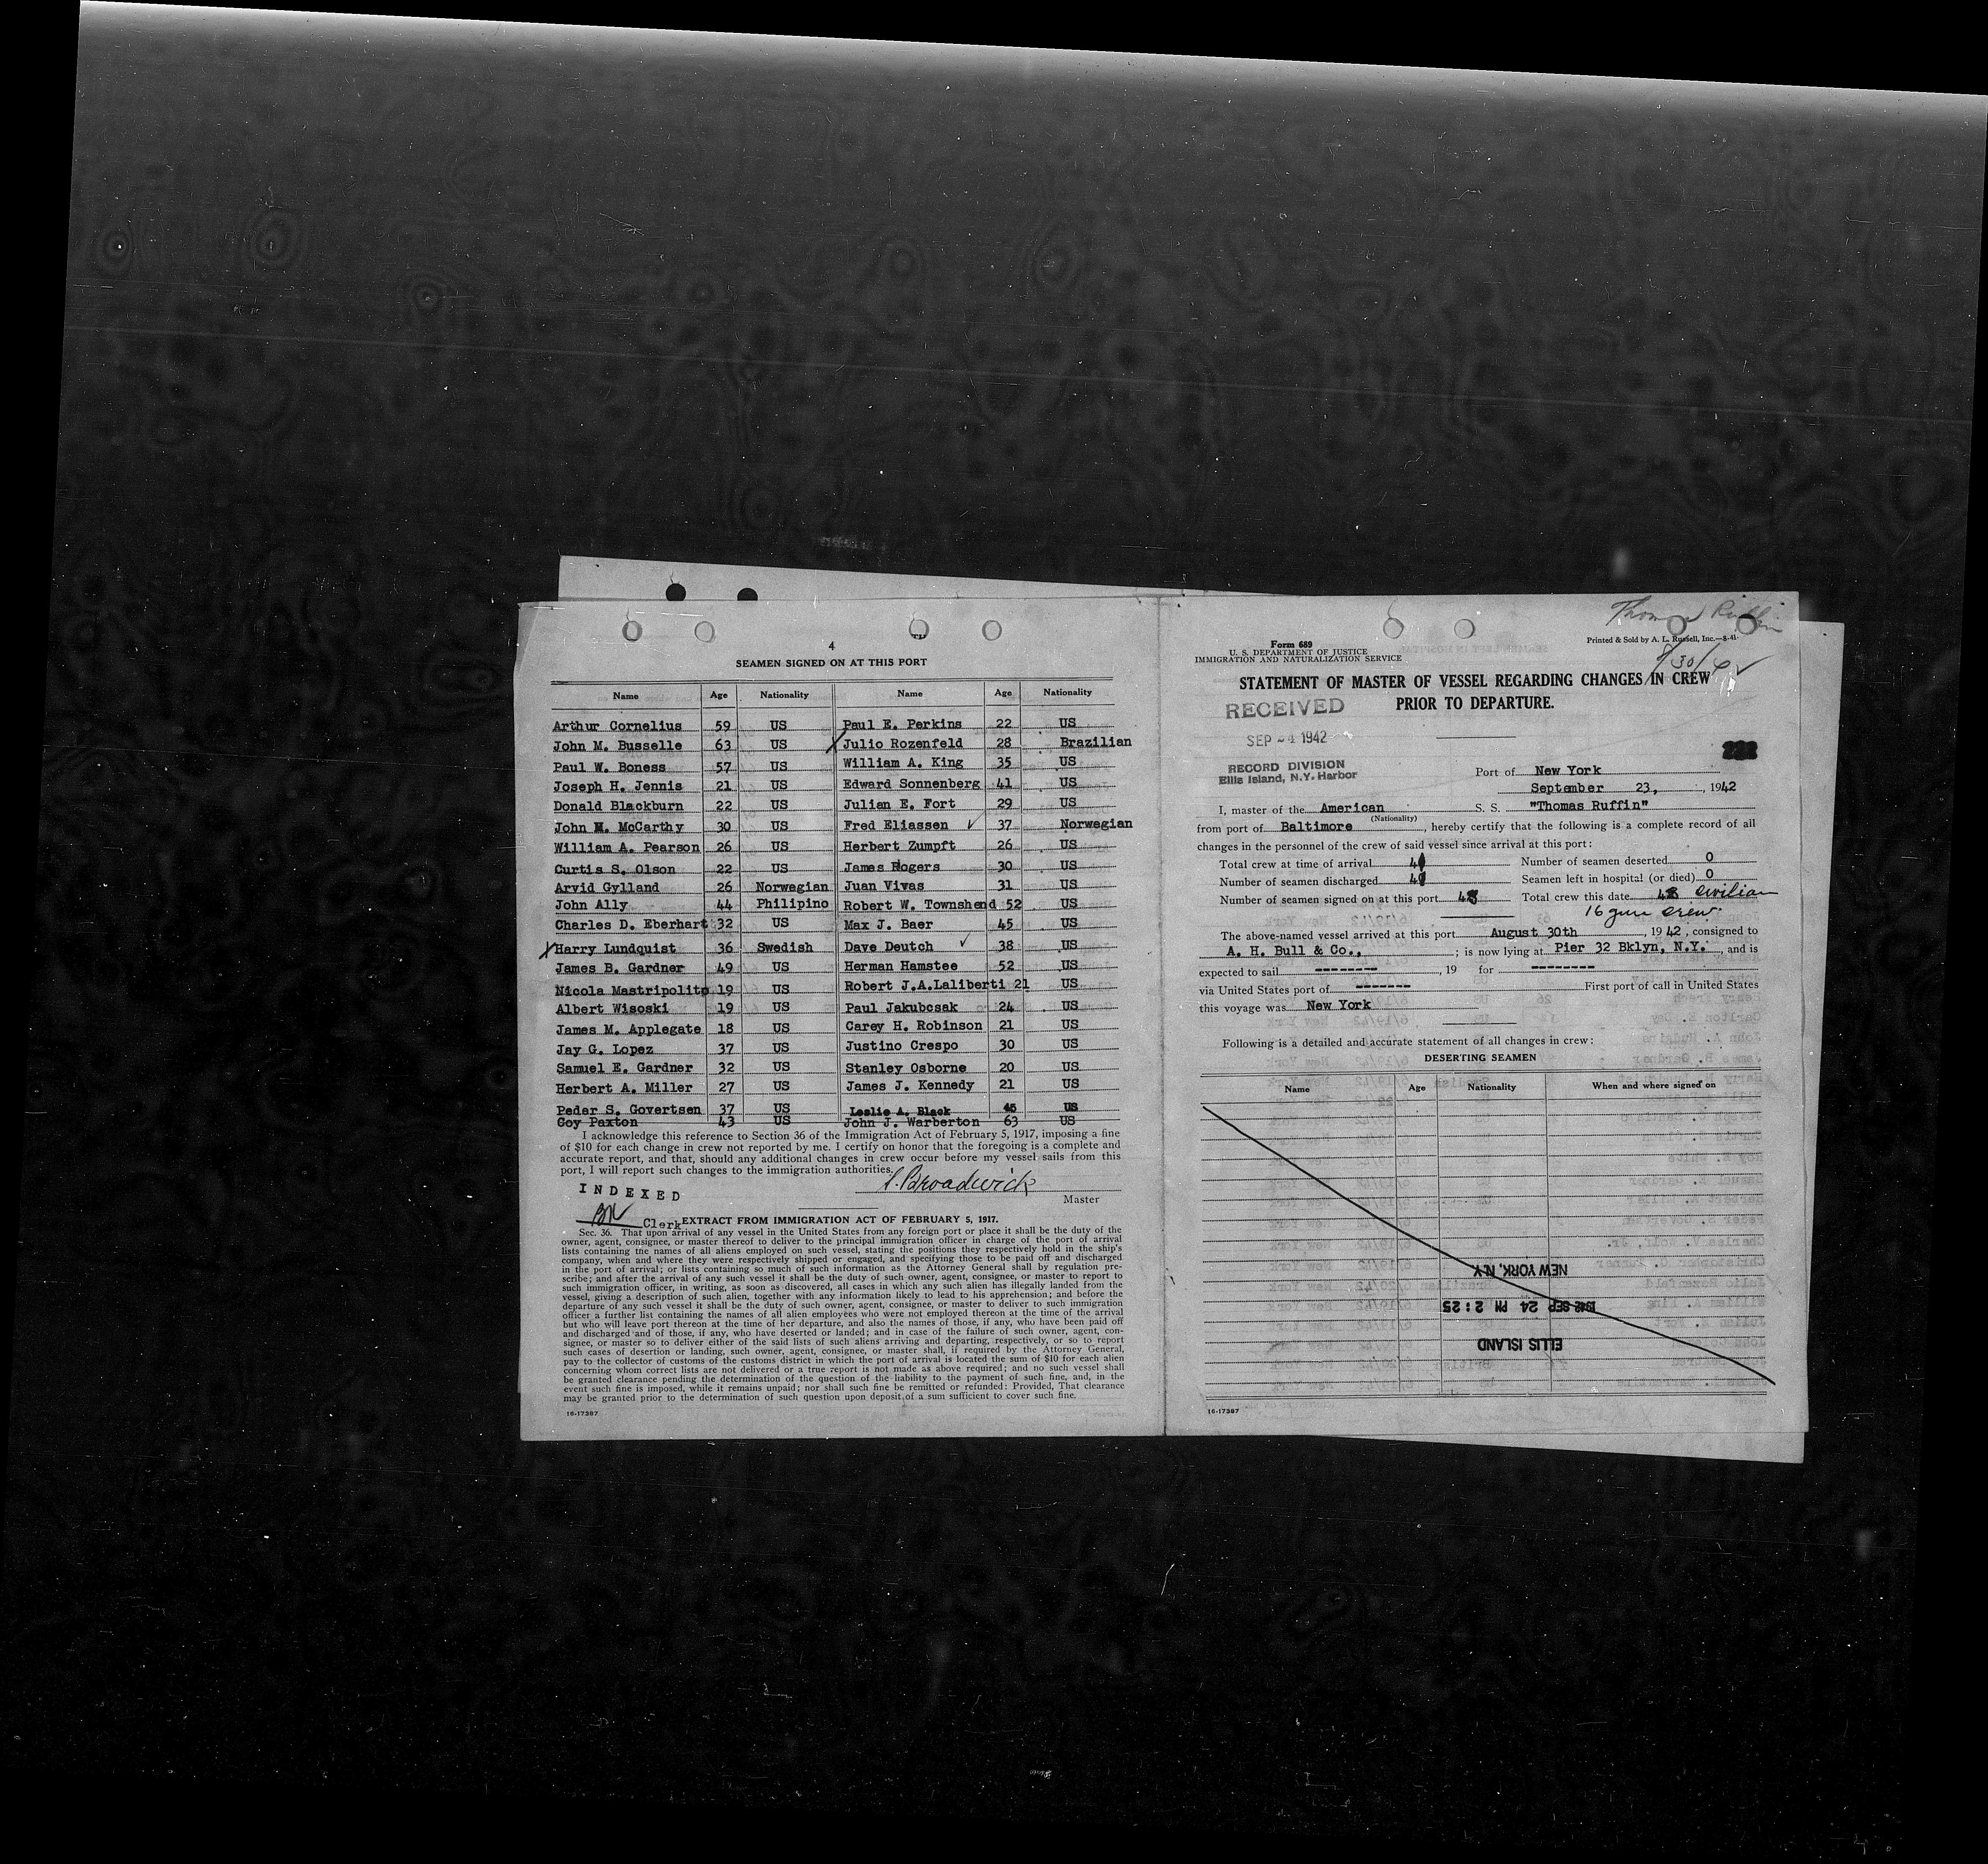 4
SEAMEN SIGNED ON AT THIS PORT
Name Age Nationality Name Age Nationality
Arthur Cornelius 59 US Paul E. Perkins 22 US
John M. Busselle 63 US X Julio Rozenfeld 28 Brazilian
Paul W. Boness 57 US William A. King 35 US
Joseph H. Jennis 21 US Edward Sonnenberg 41 US
Donald Blackburn 22 US Julian E. Fort 29 US
John M. McCarthy 30 US Fred Eliassen ✓ 37 Norwegian
William A. Pearson 26 US Herbert Zumpft 26 US
Curtis S. Olson 22 US James Rogers 30 US
Arvid Gylland 26 Norwegian Juan Vivas 31 US
John Ally 44 Philipino Robert W. Townshend 52 US
Charles D. Eberhart 32 US Max J. Baer 45 US
X Harry Lundquist 36 Swedish Dave Deutch ✓ 38 US
James B. Gardner 49 US Herman Hamstee 52 US
Nicola Mastripolito 19 US Robert J.A.Laliberti 21 US
Albert Wisoski 19 US Paul Jakubcsak 24 US
James M. Applegate 18 US Carey H. Robinson 21 US
Jay G. Lopez 37 US Justino Crespo 30 US
Samuel E. Gardner 32 US Stanley Osborne 20 US
Herbert A. Miller 27 US James J. Kennedy 21 US
Peder S. Govertsen 37 US Leslie A. Black 45 US
Coy Paxton 43 US John J. Warberton 63 US
I acknowledge this reference to Section 36 of the Immigration Act of February 5, 1917, imposing a fine
of $10 for each change in crew not reported by me. I certify on honor that the foregoing is a complete and
accurate report, and that, should any additional changes in crew occur before my vessel sails from this
port, I will report such changes to the immigration authorities.
Broadwick
Master
INDEXED
Clerk
EXTRACT FROM IMMIGRATION ACT OF FEBRUARY 5, 1917.
Sec. 36. That upon arrival of any vessel in the United States from any foreign port or place it shall be the duty of the
owner, agent, consignee, or master thereof to deliver to the principal immigration officer in charge of the port of arrival
lists containing the names of all aliens employed on such vessel, stating the positions they respectively hold in the ship's
company, when and where they were respectively shipped or engaged, and specifying those to be paid off and discharged
in the port of arrival; or lists containing so much of such information as the Attorney General shall by regulation pre-
scribe; and after the arrival of any such vessel it shall be the duty of such owner, agent, consignee, or master to report to
such immigration officer, in writing, as soon as discovered, all cases in which any such alien has illegally landed from the
vessel, giving a description of such alien, together with any information likely to lead to his apprehension; and before the
departure of any such vessel it shall be the duty of such owner, agent, consignee, or master to deliver to such immigration
officer a further list containing the names of all alien employees who were not employed thereon at the time of the arrival
but who will leave port thereon at the time of her departure, and also the names of those, if any, who have been paid off
and discharged and of those, if any, who have deserted or landed; and in case of the failure of such owner, agent, con-
signee, or master so to deliver either of the said lists of such aliens arriving and departing, respectively, or so to report
such cases of desertion or landing, such owner, agent, consignee, or master shall, if required by the Attorney General,
pay to the collector of customs of the customs district in which the port of arrival is located the sum of $10 for each alien
concerning whom correct lists are not delivered or a true report is not made as above required; and no such vessel shall
be granted clearance pending the determination of the question of the liability to the payment of such fine, and, in the
event such fine is imposed, while it remains unpaid; nor shall such fine be remitted or refunded: Provided, That clearance
may be granted prior to the determination of such question upon deposit of a sum sufficient to cover such fine.
16-17387
Thomas Ruffin
Form 689
U. S. DEPARTMENT OF JUSTICE
IMMIGRATION AND NATURALIZATION SERVICE
Printed & Sold by A. L. Russell, Inc.—8-41
8/30/42
STATEMENT OF MASTER OF VESSEL REGARDING CHANGES IN CREW
PRIOR TO DEPARTURE.
RECEIVED
SEP -4 1942
RECORD DIVISION
Ellis Island, N.Y. Harbor
Port of New York
September 23, 1942
I, master of the American S. S. "Thomas Ruffin"
(Nationality)
from port of Baltimore, hereby certify that the following is a complete record of all
changes in the personnel of the crew of said vessel since arrival at this port:
Total crew at time of arrival Number of seamen deserted 0
Number of seamen discharged Seamen left in hospital (or died) 0
Number of seamen signed on at this port Total crew this date civilian
16 gun crew.
The above-named vessel arrived at this port August 30th, 1942, consigned to
A. H. Bull & Co.,; is now lying at Pier 32 Bklyn, N.Y., and is
expected to sail --------, 19 for --------
via United States port of ------- First port of call in United States
this voyage was New York
Following is a detailed and accurate statement of all changes in crew:
DESERTING SEAMEN
Name Age Nationality When and where signed on
NEW YORK, N.Y.
1942 SEP 24 PM 2:25
ELLIS ISLAND
16-17387